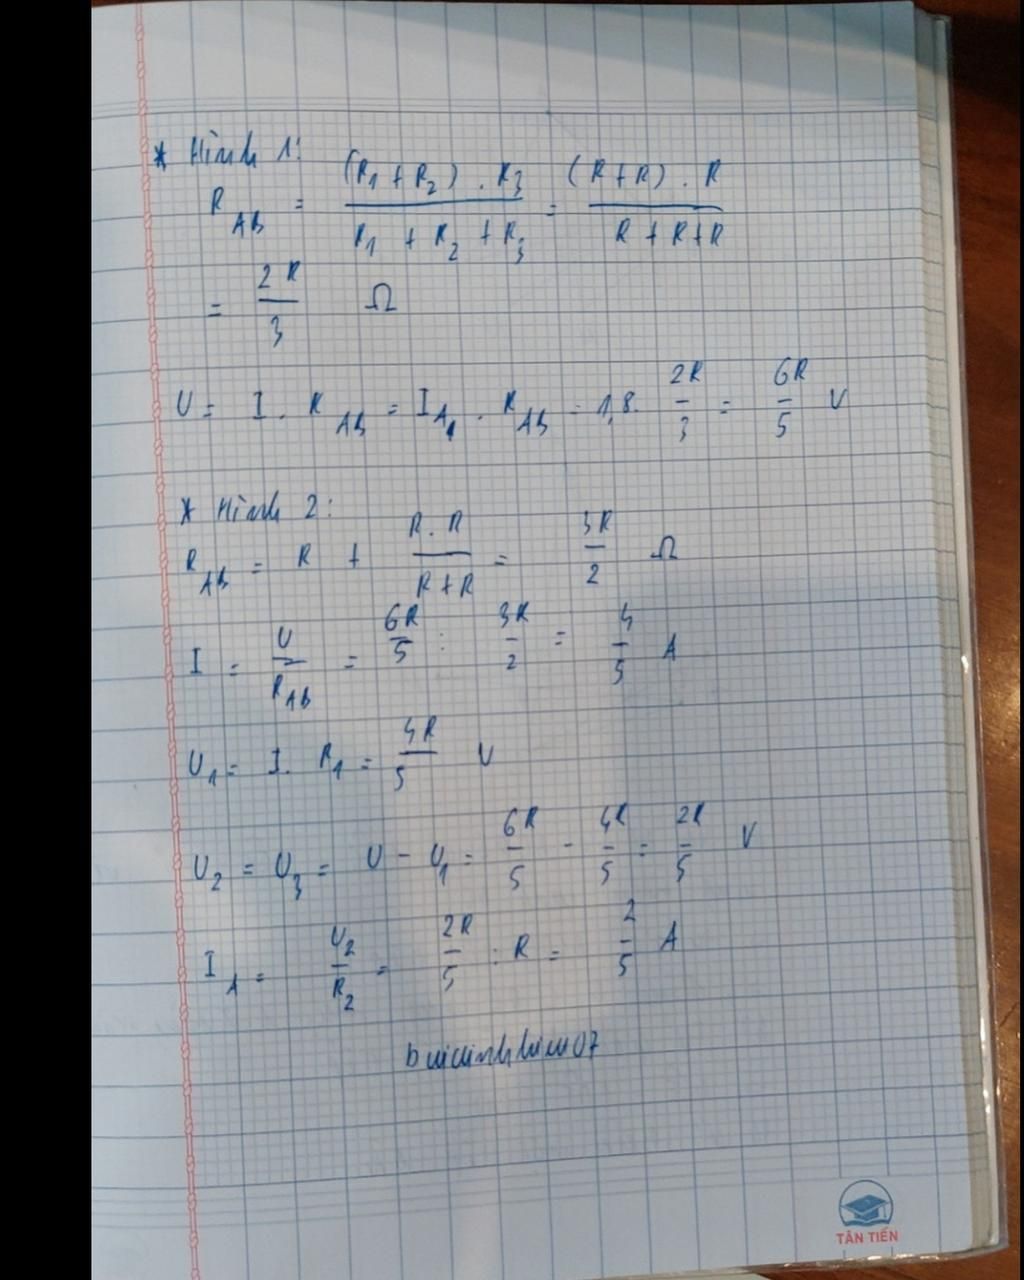 * Hình 1:
R_AB = (R_1 + R_2) . R_3 / (R_1 + R_2 + R_3) = (R + R) . R / (R + R + R)
= 2R/3 Ω
U = I . R_AB = I_A1 . R_AB = 1,8 . 2R/3 = 6R/5 V
* Hình 2:
R_AB = R + R . R / (R + R) = 3R/2 Ω
I = U/R_AB = 6R/5 : 3R/2 = 4/5 A
U_1 = I . R_1 = 4R/5 V
U_2 = U_3 = U - U_1 = 6R/5 - 4R/5 = 2R/5 V
I_A = U_2/R_2 = 2R/5 : R = 2/5 A
TÂN TIẾN